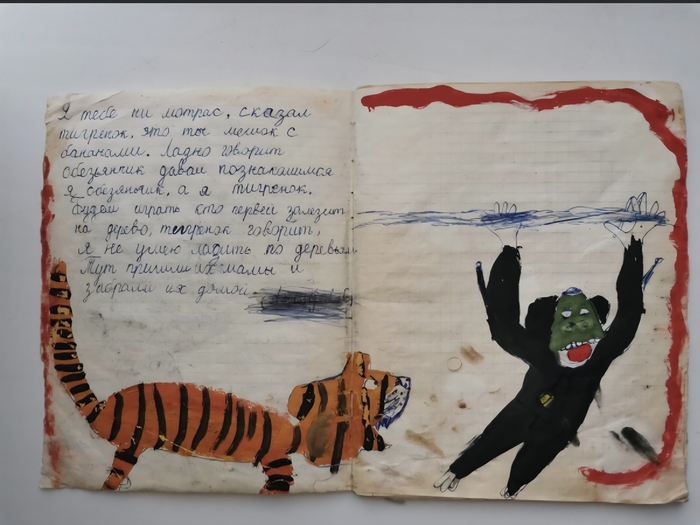 Я тебе ни матрас, сказал
тигренок, это ты мешок с
бананами. Ладно говорит
обезьянчик давай познакомимся
я обезянчик, а я тигренок.
Будем играть кто первей залезит
на дерево, тигренок говорит,
я не умею лазить по деревьям
Тут пришли их мамы и
забрали их домой